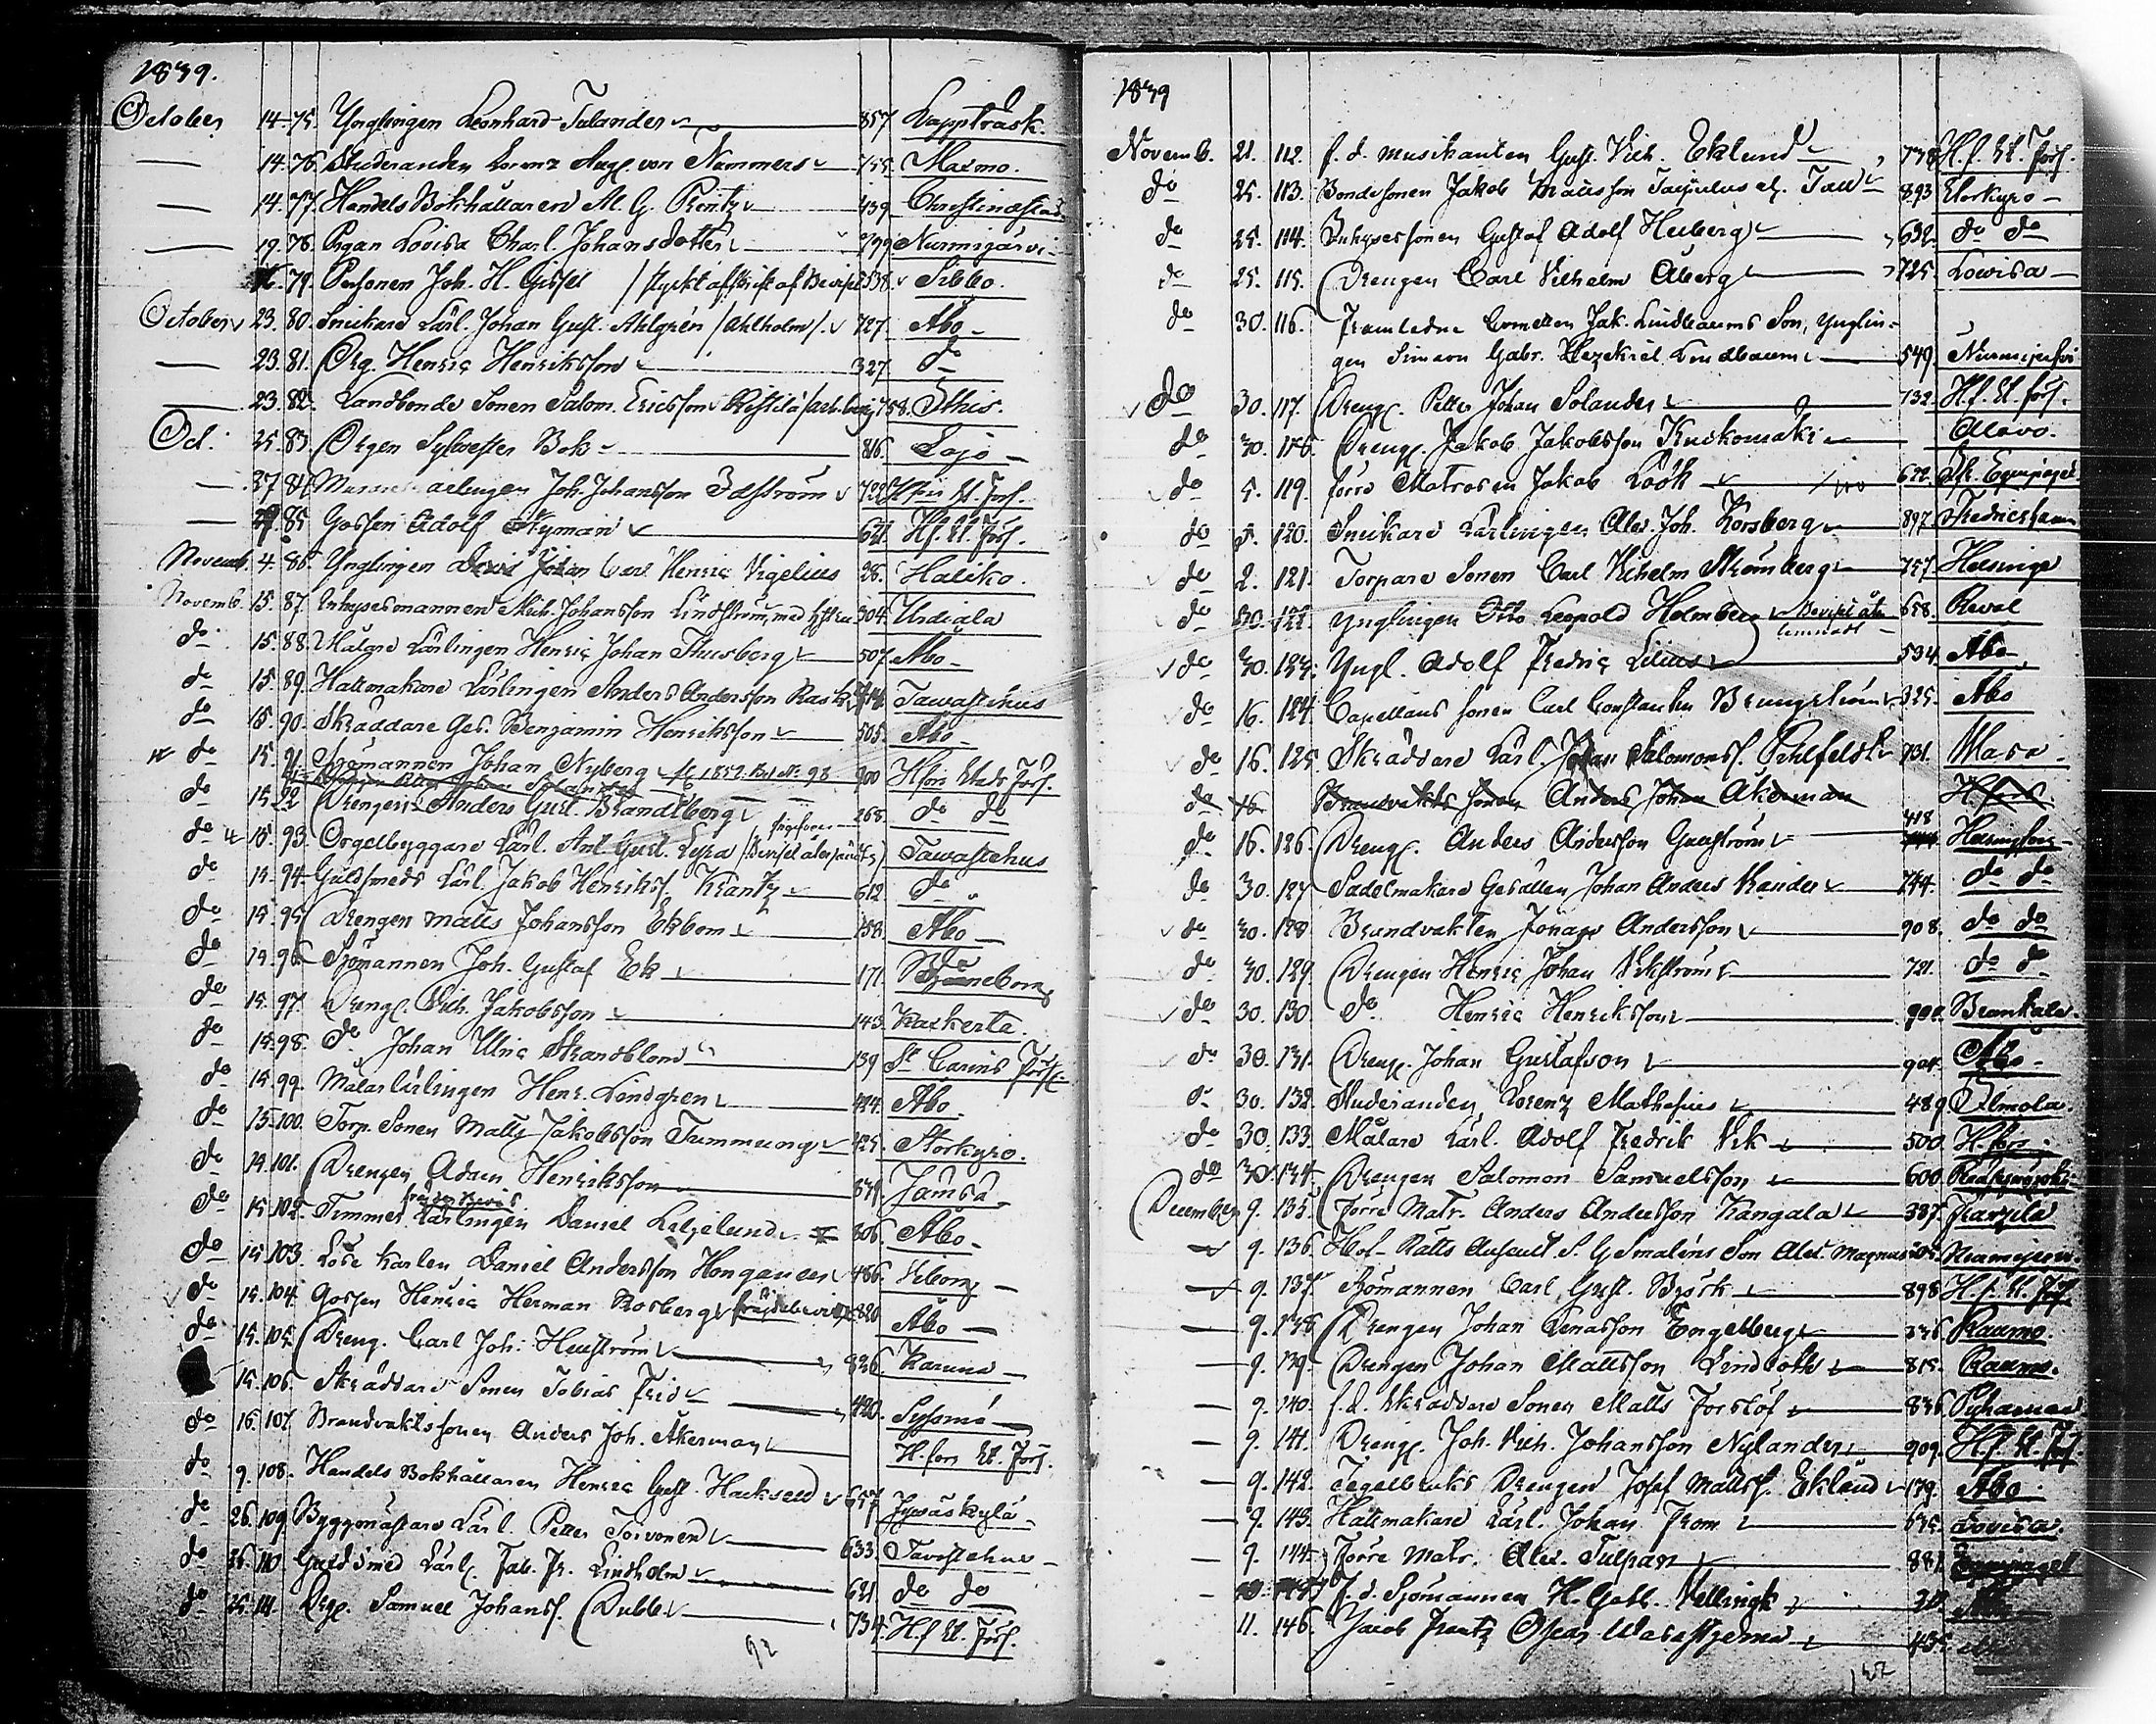 1839.
October 14. 75. Ynglingen Leonhard Talander 857 Lappträsk.
— 14. 76. Studeranden Lorenz Aug. von Nummers 755. Maxmo.
— 14. 77. Handels Bokhållaren M. G. Prentz 439 Christinæstad
— 19. 78. Pigan Lovisa Charl. Johansdotter 799 Nurmijärvi
16. 79. Personen Joh. H. Gissel / styrkt afskrift af Beviset 538. Sibbo.
October 23. 80. Snickare Lärl. Johan Gust. Ahlgrén /Ahlholm/. 727. Åbo
— 23. 81. Drg. Henric Henriksson 327 do
— 23. 82. Landbonde Sonen Salom. Ericsson 758. Ithis.
Oct. 25. 83. Drgen Sylvester Bok 816. Lojo
— 27 84. Joh. Johansson 722 Hfors St. Förs.
— 27. 85 Gossen Adolf Nyman 621. Hf. St. Förs.
Novemb. 4. 86. Ynglingen Carl Henric Vigelius 28. Haliko.
Novemb. 15. 87. Inhysesmannen Mich. Johansson Lindström, med hustru 304. Urdiala
do 15. 88. Målare Lärlingen Henric Johan Thusberg 507. Åbo
do 15. 89. Hattmakare Lärlingen Anders Andersson Rask Tawastehus
do 15. 90. Skräddare Ges. Benjamin Henriksson 505. Åbo
do 15. 91. Sjömannen Johan Nyberg 1852. No. 98 900 Hfors Stads Förs.
do 15 92 Drengen Anders Gust. Brandtberg 268. do do
do 15. 93. Orgelbyggare Lärl. Ant. Gust. Lyra /Beviset återsändt/ Tawastehus
do 15. 94. Guldsmeds Lärl. Jakob Henrikss. Krantz 612. do
do 15. 95. Drengen Matts Johansson Ekbom 158. Åbo
do 15. 96. Sjömannen Joh. Gustaf Ek 171. Björneborg do
do 15. 97. Dreng. Vich. Jakobsson 143. Kaskerta.
do 15. 98. do Johan Ulric Strandblom 139 St Carins Förs.
do 15. 99. Målarlärlingen Henr. Lindgren 424. Åbo
do 15. 100. Torp. Sonen Matts Jakobsson Tummunng 425. Storkyro.
do 15. 101. Drengen Adam Henriksson 839. Jämsä
do 15. 102. Timmer Lärlingen Daniel Liljelund 806. Åbo
do 15. 103. Löse Karlen Daniel Andersson Honganen 486. Viborg
do 15. 104. Gossen Henric Herman Rosberg frejdebevis 820 Åbo
do 15. 105. Dreng. Carl Joh. Hellström 826. Karuna
15. 106. Skräddare Sonen Tobias Frid 420. Sysmä
do 16. 107. Brandvaktssonen Anders Joh. Åkerman H.fors St. Förs.
do 9. 108. Handels Bokhållaren Henric Gust. Hacksell 657 Jyväskylä
do 26. 109. Byggmästare Lärl. Petter Toivonen 633. Tavastehus
do 26. 110 Guldsmed Lärl. Fab. Fr. Lindholm 621 do do
do 25. 111. Drg. Samuel Johanss. Dubbel 734. H.f St. Förs.
92
1839
Novemb. 21. 112. f. d. musikanten Gust. Vich. Eklund 738 H.f. St. Förs.
do 25. 113. Bondesonen Jakob Mattsson 893 Storkyro
do 25. 114. Inhysessonen Gustaf Adolf Heiberg 632. do do
do 25. 115. Drengen Carl Vilhelm Åberg 725. Lowisa
do 30. 116. Framledne Jak. Lindbaums Son, Ynglin-
gen Simeon Gabr. Hezekiel Lindbaum 549. Nurmijerfvi
do 30. 117. Dreng. Petter Johan Solander 732. H.f. St. förs.
do 30. 118. Dreng. Jakob Jakobsson Kuckomäki Alavo.
do 5. 119. förre Matrosen Jakob Löök 672.
do 5. 120. Snickare Lärlingen Alex. Joh. Korsberg 897 Fredricshamn
do 2. 121. Torpare Sonen Carl Vilhelm Strömberg 757 Helsinge
do 30. 122. Ynglingen Otto Leopold Holmberg Beviset åter lemnadt 658. Reval
do 30. 123. Yngl. Adolf Fredric Lilius 534. Åbo
do 16. 124. Capellans sonen Carl Constantin Brunström 325. Åbo
do 16. 125. Skräddare Lärl. Johan Salomonss. Pihlfelst 731. Wasa
do 16 Brandvakts sonen Anders Johan Åkerman H.fors
do 16. 126. Dreng. Anders Andersson Gustström 418 Helsingfors
do 30. 127 Sadelmakare Gesällen Johan Anders Kander 744. do do
do 30. 128 Brandvakten Johan Andersson 908. do do
do 30. 129 Drengen Henric Johan Vikström 721. do do
do 30. 130. do Henric Henriksson 900. Bromkala
do 30. 131. Dreng. Johan Gustafson 904. Åbo
do 30. 132. Studeranden Lorenz Mathesius 489 Ilmola.
do 30. 133. Målare Lärl. Adolf Fredrik Vik 500. H.fors
do 30. 134. Drengen Salomon Samuelsson 600
December 9. 135. Förre Matr. Anders Andersson Kangala 387.
— 9. 136. Hof-Rätts S. G Smaléns Son Alex. Magnus
— 9. 137. Sjömannen Carl Gust. Björk 898 H.f. St. Förs
— 9. 138 Drengen Johan Enarsson Engelberg 336 Raumo.
— 9. 139. Drengen Johan Mattsson Lindroth 815. Raumo.
— 9. 140. f.d. Skräddare Sonen Matts Forslöf 836. Pyhämaa
— 9. 141. Dreng. Joh. Vich. Johansson Nylander 909. H.f. St. Förs
— 9. 142. Tegelbruks Drengen Josef Mattss. Eklund 179. Åbo
— 9. 143. Hattmakare Lärl. Johan From 635. Lovisa.
— 9. 144. Förre Matr. Alex. Tulpan 881
— 10. 145 f.d. Sjömannen H. Gabr. Vellingk
11. 146. Jacob Frantz Oscar Wasastjerna 435
132